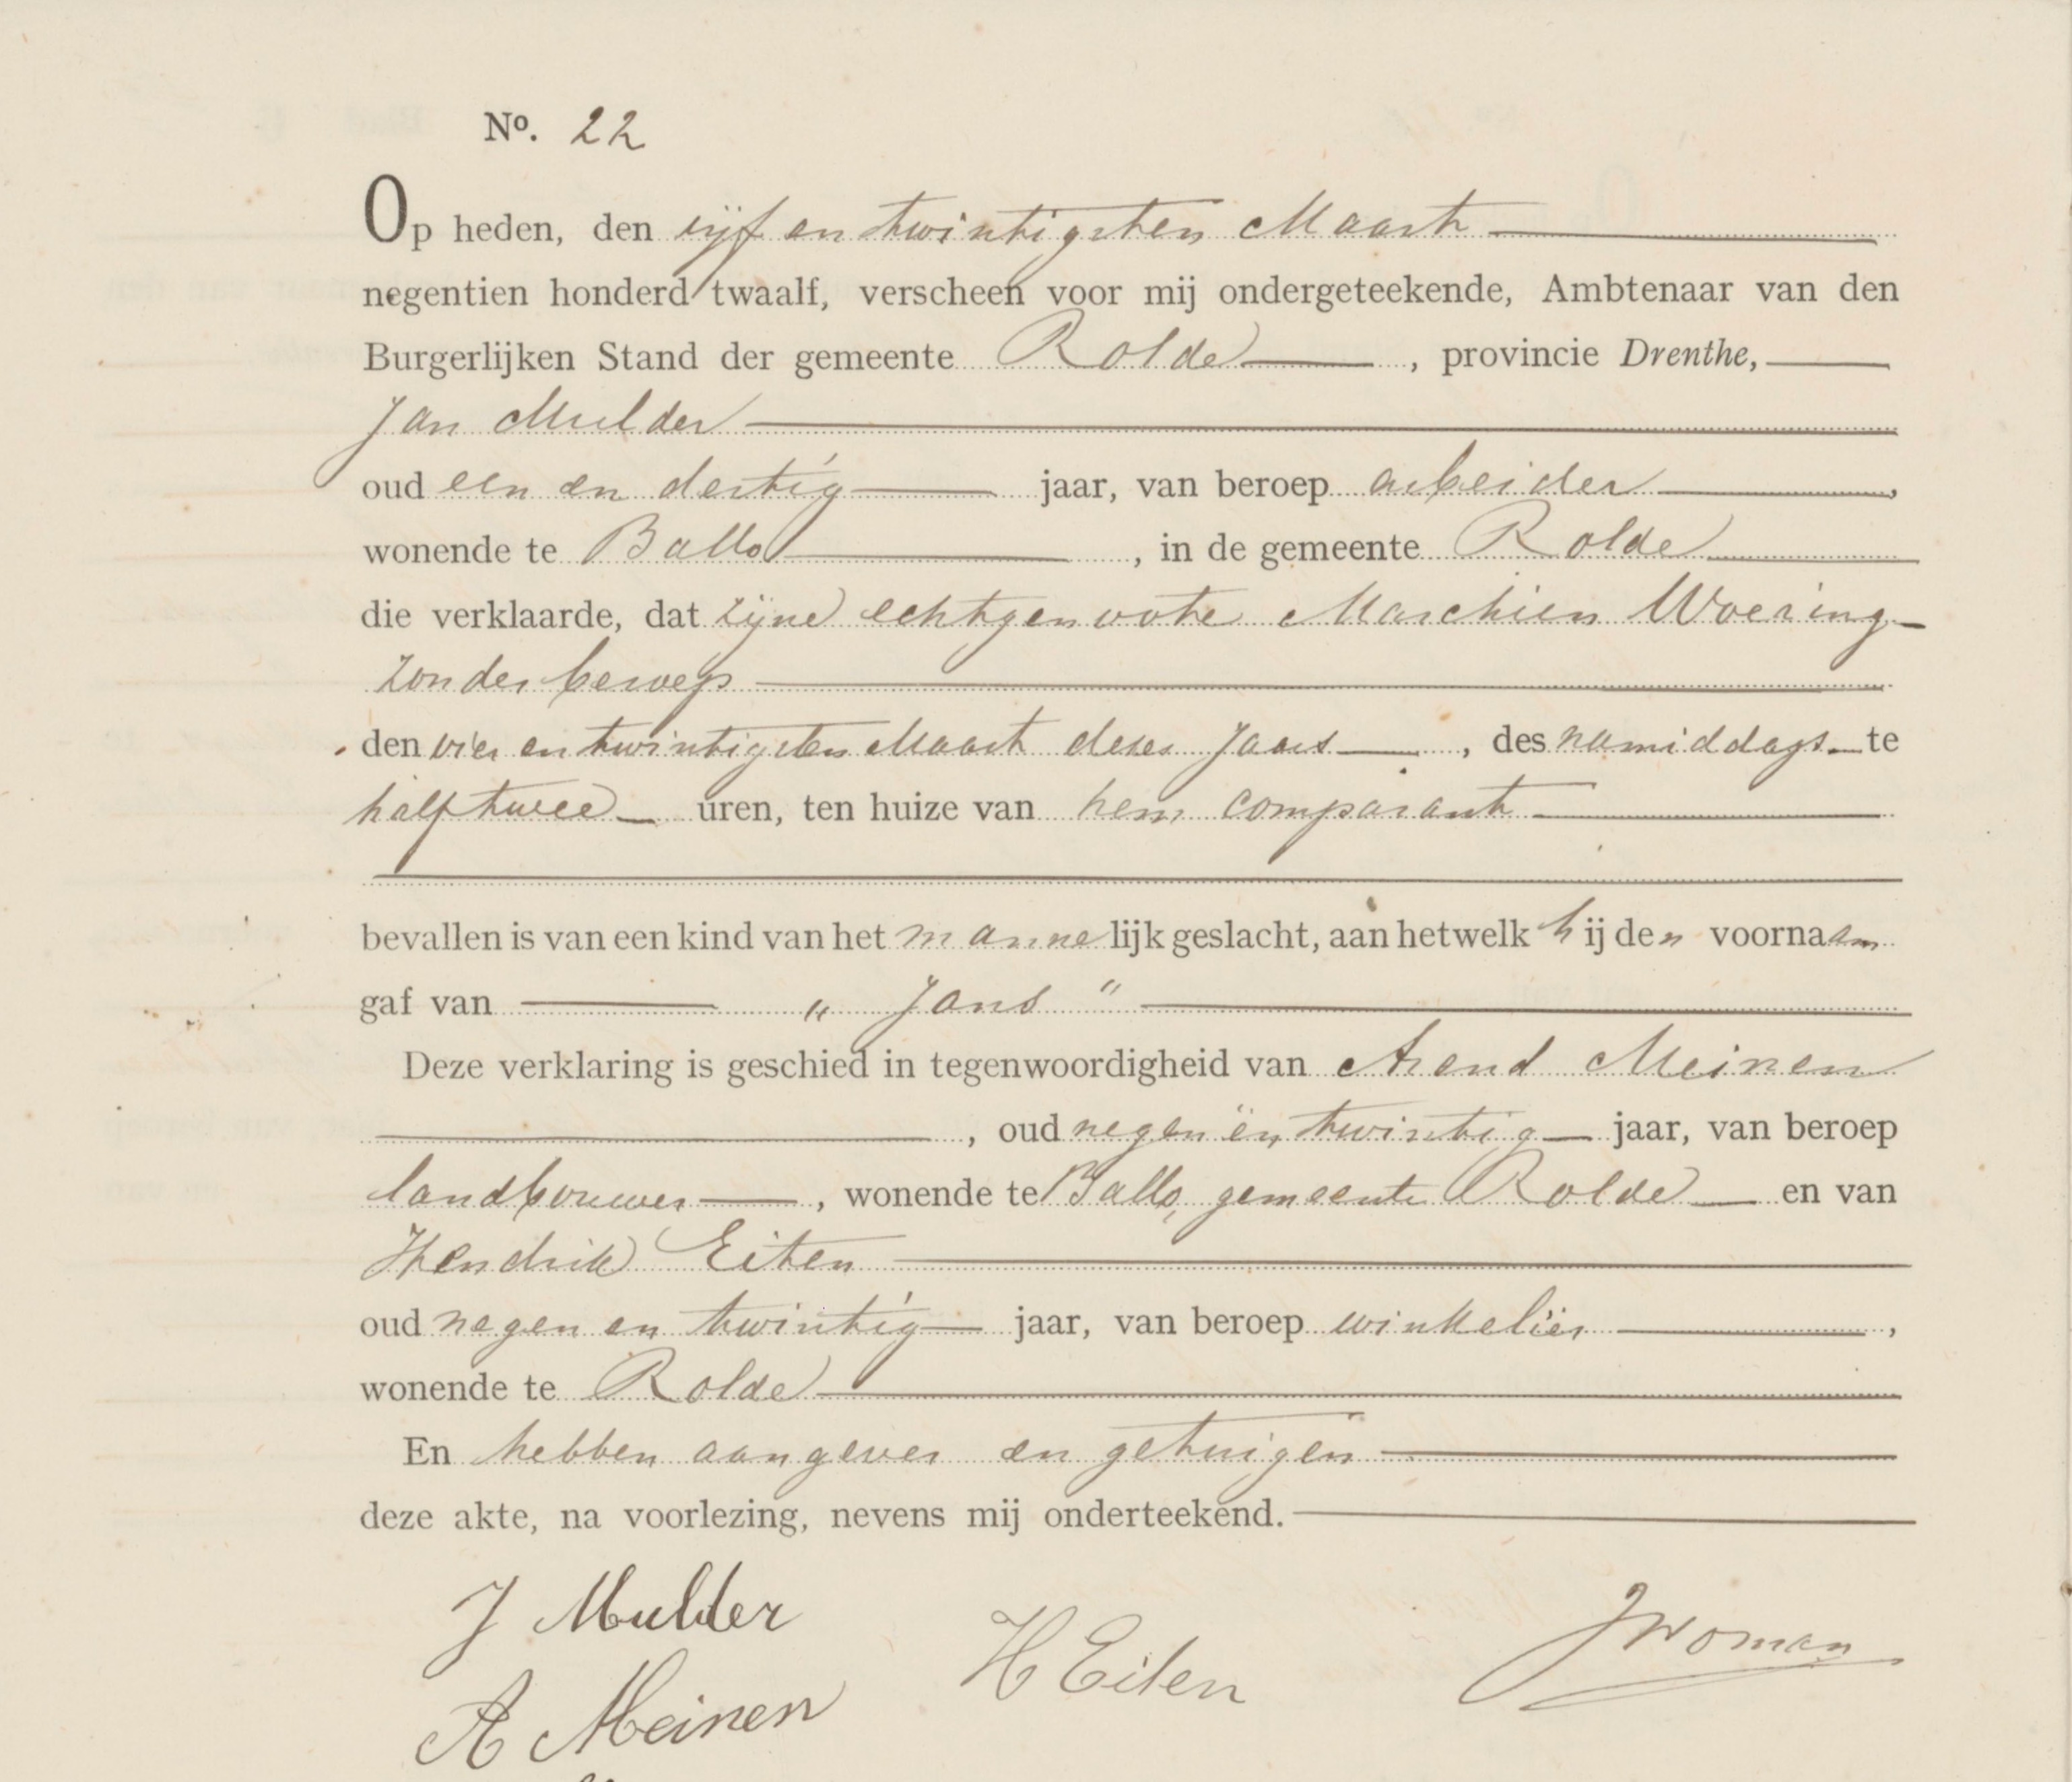 No. 22
Op heden, den vijf en twintigsten Maart
negentien honderd twaalf, verscheen voor mij ondergeteekende, Ambtenaar van den
Burgerlijken Stand der gemeente Rolde, provincie Drenthe,
Jan Mulder
oud een en dertig jaar, van beroep arbeider,
wonende te Ballo, in de gemeente Rolde
die verklaarde, dat zijne echtgenoote Marchien Woering
zonder beroep
den vier en twintigsten Maart dezes jaars, des namiddags te
half twee uren, ten huize van hem comparant
bevallen is van een kind van het mannelijk geslacht, aan hetwelk hij den voornaam
gaf van „ Jans "
Deze verklaring is geschied in tegenwoordigheid van Arend Meinen
, oud negen en twintig jaar, van beroep
landbouwer, wonende te Ballo, gemeente Rolde en van
Hendrik Eiten
oud negen en twintig jaar, van beroep winkelier,
wonende te Rolde
En hebben aangever en getuigen
deze akte, na voorlezing, nevens mij onderteekend.
J Mulder
H Eiten
A Meinen